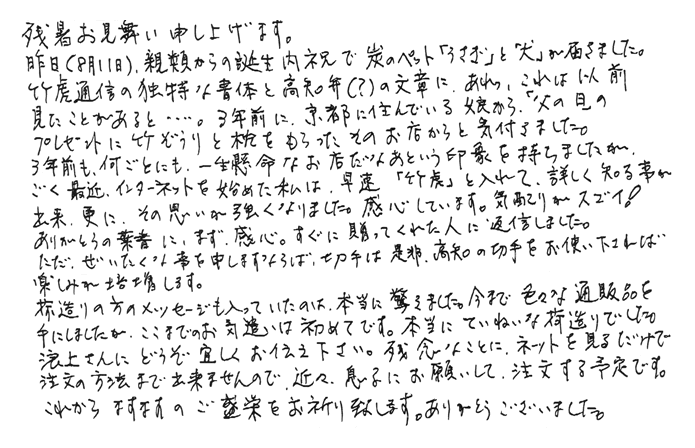 残暑お見舞い申し上げます。
昨日(8月11日)、親類からの誕生内祝で炭のペット「うさぎ」と「犬」が届きました。
竹虎通信の独特な書体と高知弁(?)の文章に、あれっ、これは以前
見たことがあると・・・・。3年前に、京都に住んでいる娘から、「父の日の
プレゼントに竹ぞうりと枕をもらったそのお店からと気付きました。
3年前も、何ごとにも、一生懸命なお店だなあという印象を持ちましたが、
ごく最近、インターネットを始めた私は、早速「竹虎」と入れて、詳しく知る事が
出来、更に、その思いが強くなりました。感心しています。気配りがスゴイ!
ありがとうの葉書に、まず、感心。すぐに贈ってくれた人に返信しました。
ただ、ぜいたくな事を申しますならば、切手は是非、高知の切手をお使い下されば
楽しみが倍増します。
荷造りの方のメッセージも入っていたのは、本当に驚きました。今まで色々な通販品を
手にしましたが、ここまでのお気遣いは初めてです。本当にていねいな荷造りでした。
浜上さんにどうぞ宜しくお伝え下さい。残念なことに、ネットを見るだけで
注文の方法まで出来ませんので、近々、息子にお願いして、注文する予定です。
これからますますのご盛栄をお祈り致します。ありがとうございました。